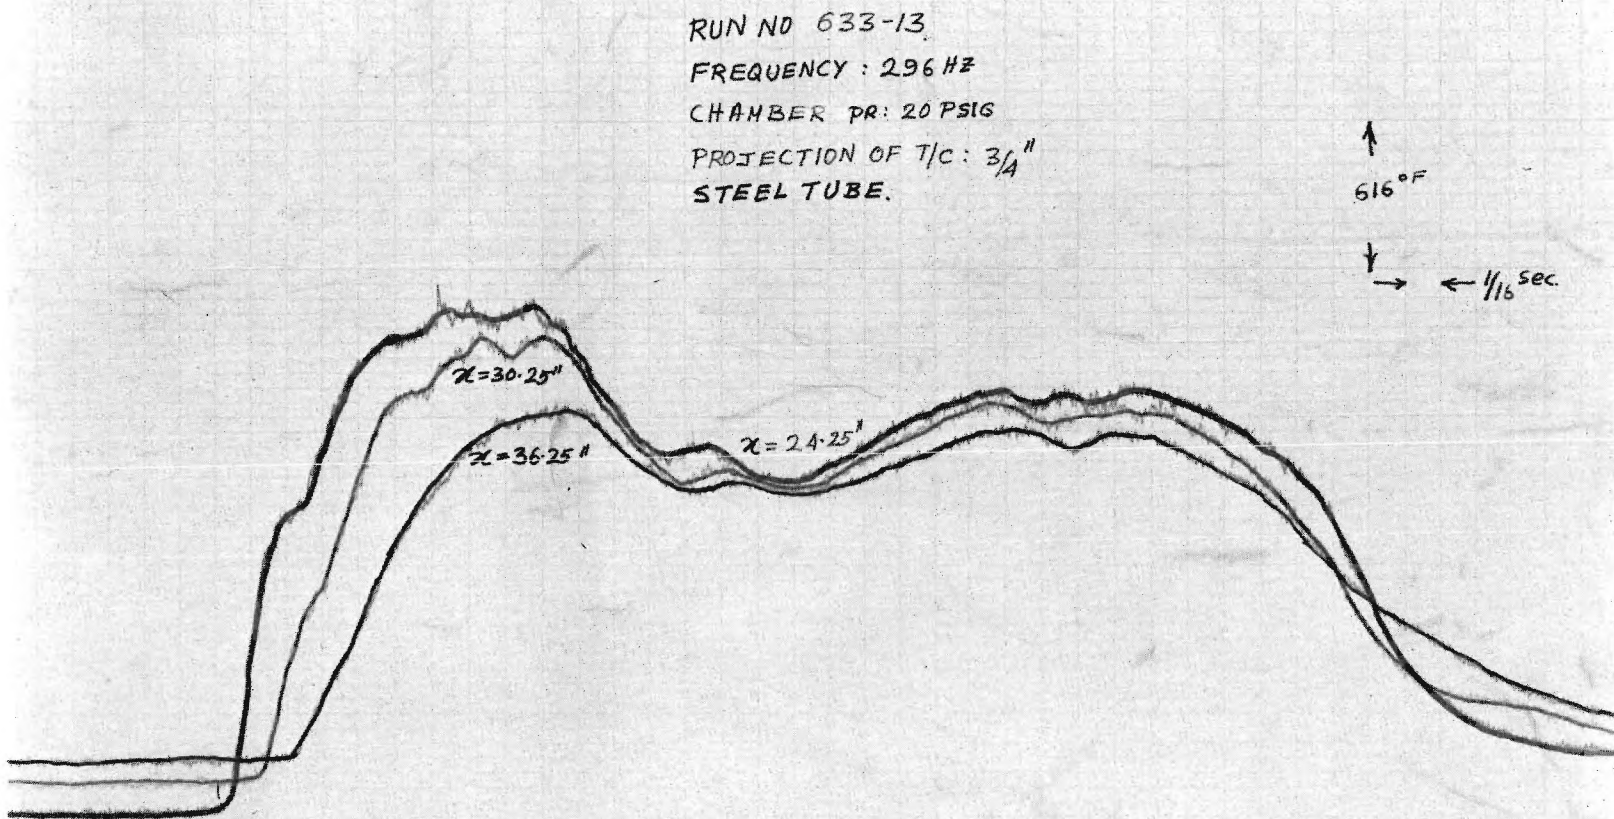 RUN NO 633-13.
FREQUENCY : 296 HZ
CHAMBER PR: 20 PSIG
PROJECTION OF T/C : 3/4"
STEEL TUBE.
616°F
1/16 sec.
x=30.25"
x=24.25"
x=36.25"